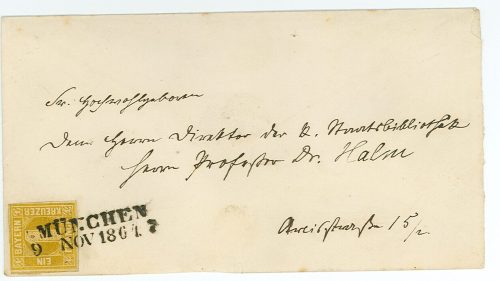 Sr. Hochwohlgeboren
Dem Herrn Direktor der K. Staatsbibliothek
Herrn Professor Dr. Halm
Arcisstraße 15/2.
BAYERN
EIN
KREUZER
MÜNCHEN
9 NOV 1864 7